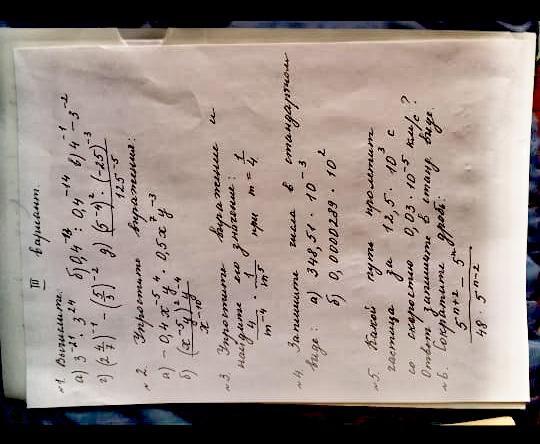 III вариант.
№1 Вычислите:
а) 3⁻²¹ · 3²⁴ б) 0,4⁻¹⁶ : 0,4⁻¹⁴ в) 4⁻¹ - 3⁻²
г) (2 4/7)⁻¹ - (5/3)⁻² д) (5⁻⁴)² · (-25)⁻³ / 125⁻⁵
№2. Упростите выражения:
а) -0,4x⁻⁵y⁴ · 0,5x⁷y⁻³
б) (x⁻⁵)² y⁴ / x⁻¹⁰y
№3. Упростите выражение и
найдите его значение:
4/m⁻⁴ · 1/m⁵ при m = 1/4
№4. Запишите числа в стандартном
виде: а) 348,51 · 10⁻³
б) 0,0000289 · 10²
№5. Какой путь пролетит
частица за 12,5 · 10³ с
со скоростью 0,03 · 10⁻⁵ км/с?
Ответ запишите в станд виде.
№6. Сократите дробь:
5ⁿ⁺² - 5ⁿ / 48 · 5ⁿ⁻²